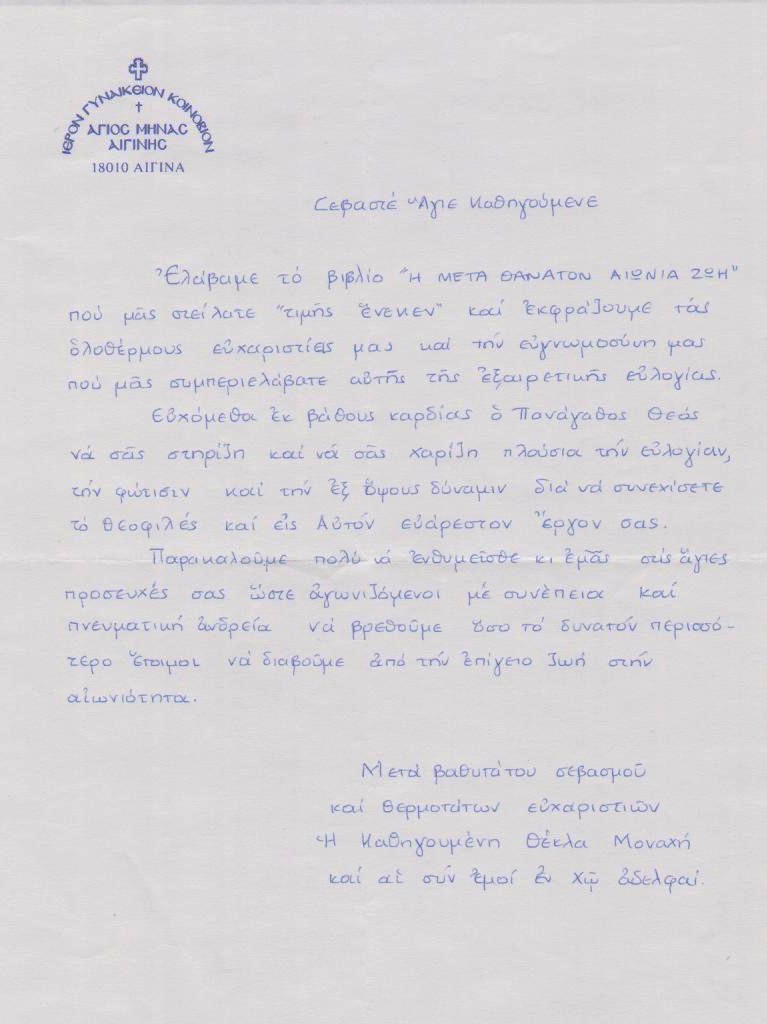 ΙΕΡΟΝ ΓΥΝΑΙΚΕΙΟΝ ΚΟΙΝΟΒΙΟΝ
ΑΓΙΟΣ ΜΗΝΑΣ
ΑΙΓΙΝΗΣ
18010 ΑΙΓΙΝΑ
Σεβαστέ Ἅγιε Καθηγούμενε
Ἐλάβαμε τό βιβλίο "Η ΜΕΤΑ ΘΑΝΑΤΟΝ ΑΙΩΝΙΑ ΖΩΗ"
πού μᾶς στείλατε "τιμῆς ἕνεκεν" καί ἐκφράζουμε τάς
ὁλοθέρμους εὐχαριστίες μας καί τήν εὐγνωμοσύνη μας
πού μᾶς συμπεριελάβατε αὐτῆς τῆς ἐξαιρετικῆς εὐλογίας.
Εὐχόμεθα ἐκ βάθους καρδίας ὁ Πανάγαθος Θεός
νά σᾶς στηρίζη καί νά σᾶς χαρίζη πλούσια τήν εὐλογίαν,
τήν φώτισιν καί τήν ἐξ ὕψους δύναμιν διά νά συνεχίσετε
τό θεοφιλές καί εἰς Αὐτόν εὐάρεστον ἔργον σας.
Παρακαλοῦμε πολύ νά ἐνθυμεῖσθε κι ἐμᾶς στίς ἅγιες
προσευχές σας ὥστε ἀγωνιζόμενοι μέ συνέπεια καί
πνευματική ἀνδρεία νά βρεθοῦμε ὅσο τό δυνατόν περισσό-
τερο ἕτοιμοι νά διαβοῦμε ἀπό τήν ἐπίγειο ζωή στήν
αἰωνιότητα.
Μετά βαθυτάτου σεβασμοῦ
καί θερμοτάτων εὐχαριστιῶν
Ἡ Καθηγουμένη Θέκλα Μοναχή
καί αἱ σύν ἐμοί ἐν Χῷ ἀδελφαί.